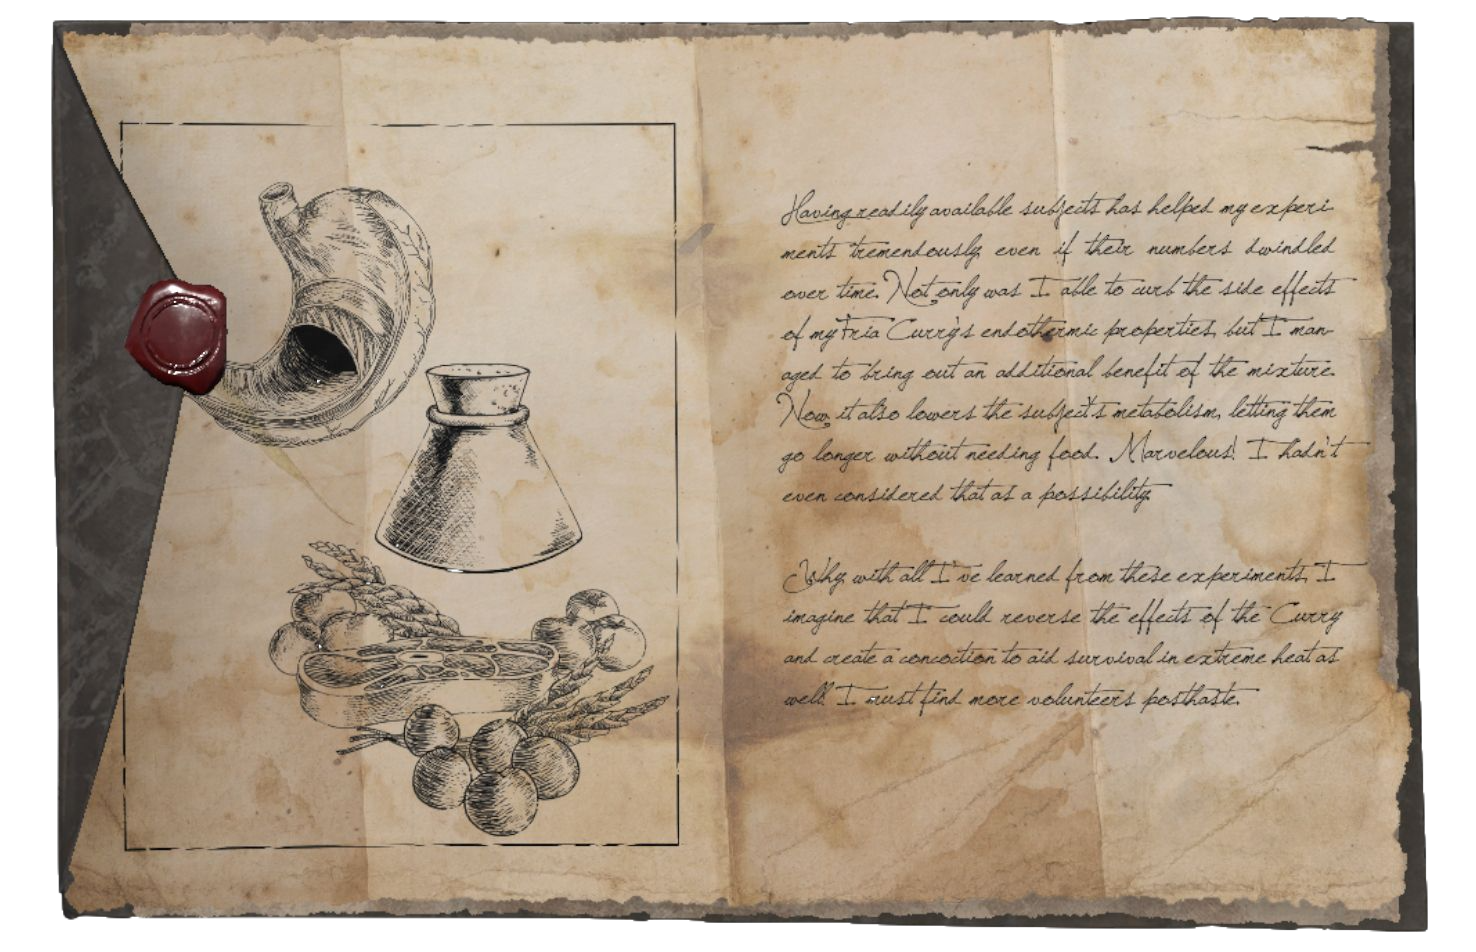 Having readily available subjects has helped my experi-
ments tremendously, even if their numbers dwindled
over time. Not only was I able to curb the side effects
of my Fria Curry's endothermic properties, but I man-
aged to bring out an additional benefit of the mixture.
Now it also lowers the subject's metabolism, letting them
go longer without needing food. Marvelous! I hadn't
even considered that as a possibility.
Why, with all I've learned from these experiments, I
imagine that I could reverse the effects of the Curry
and create a concoction to aid survival in extreme heat as
well! I must find more volunteers posthaste.